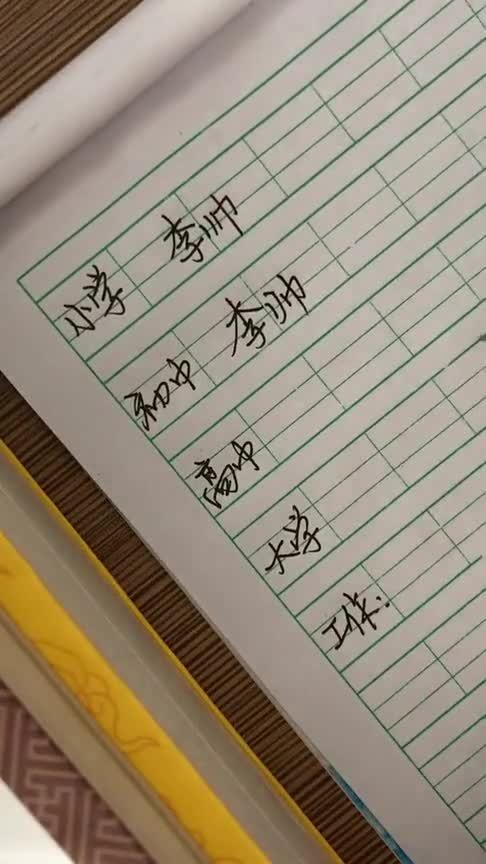 小学 李帅
初中 李帅
高中
大学
工作: